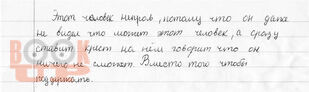 Этот человек неправ, потому что он даже
не видел что может этот человек, а сразу
ставит крест на нём говорит что он
ничего не сможет. Вместо того чтобы
поддержать.